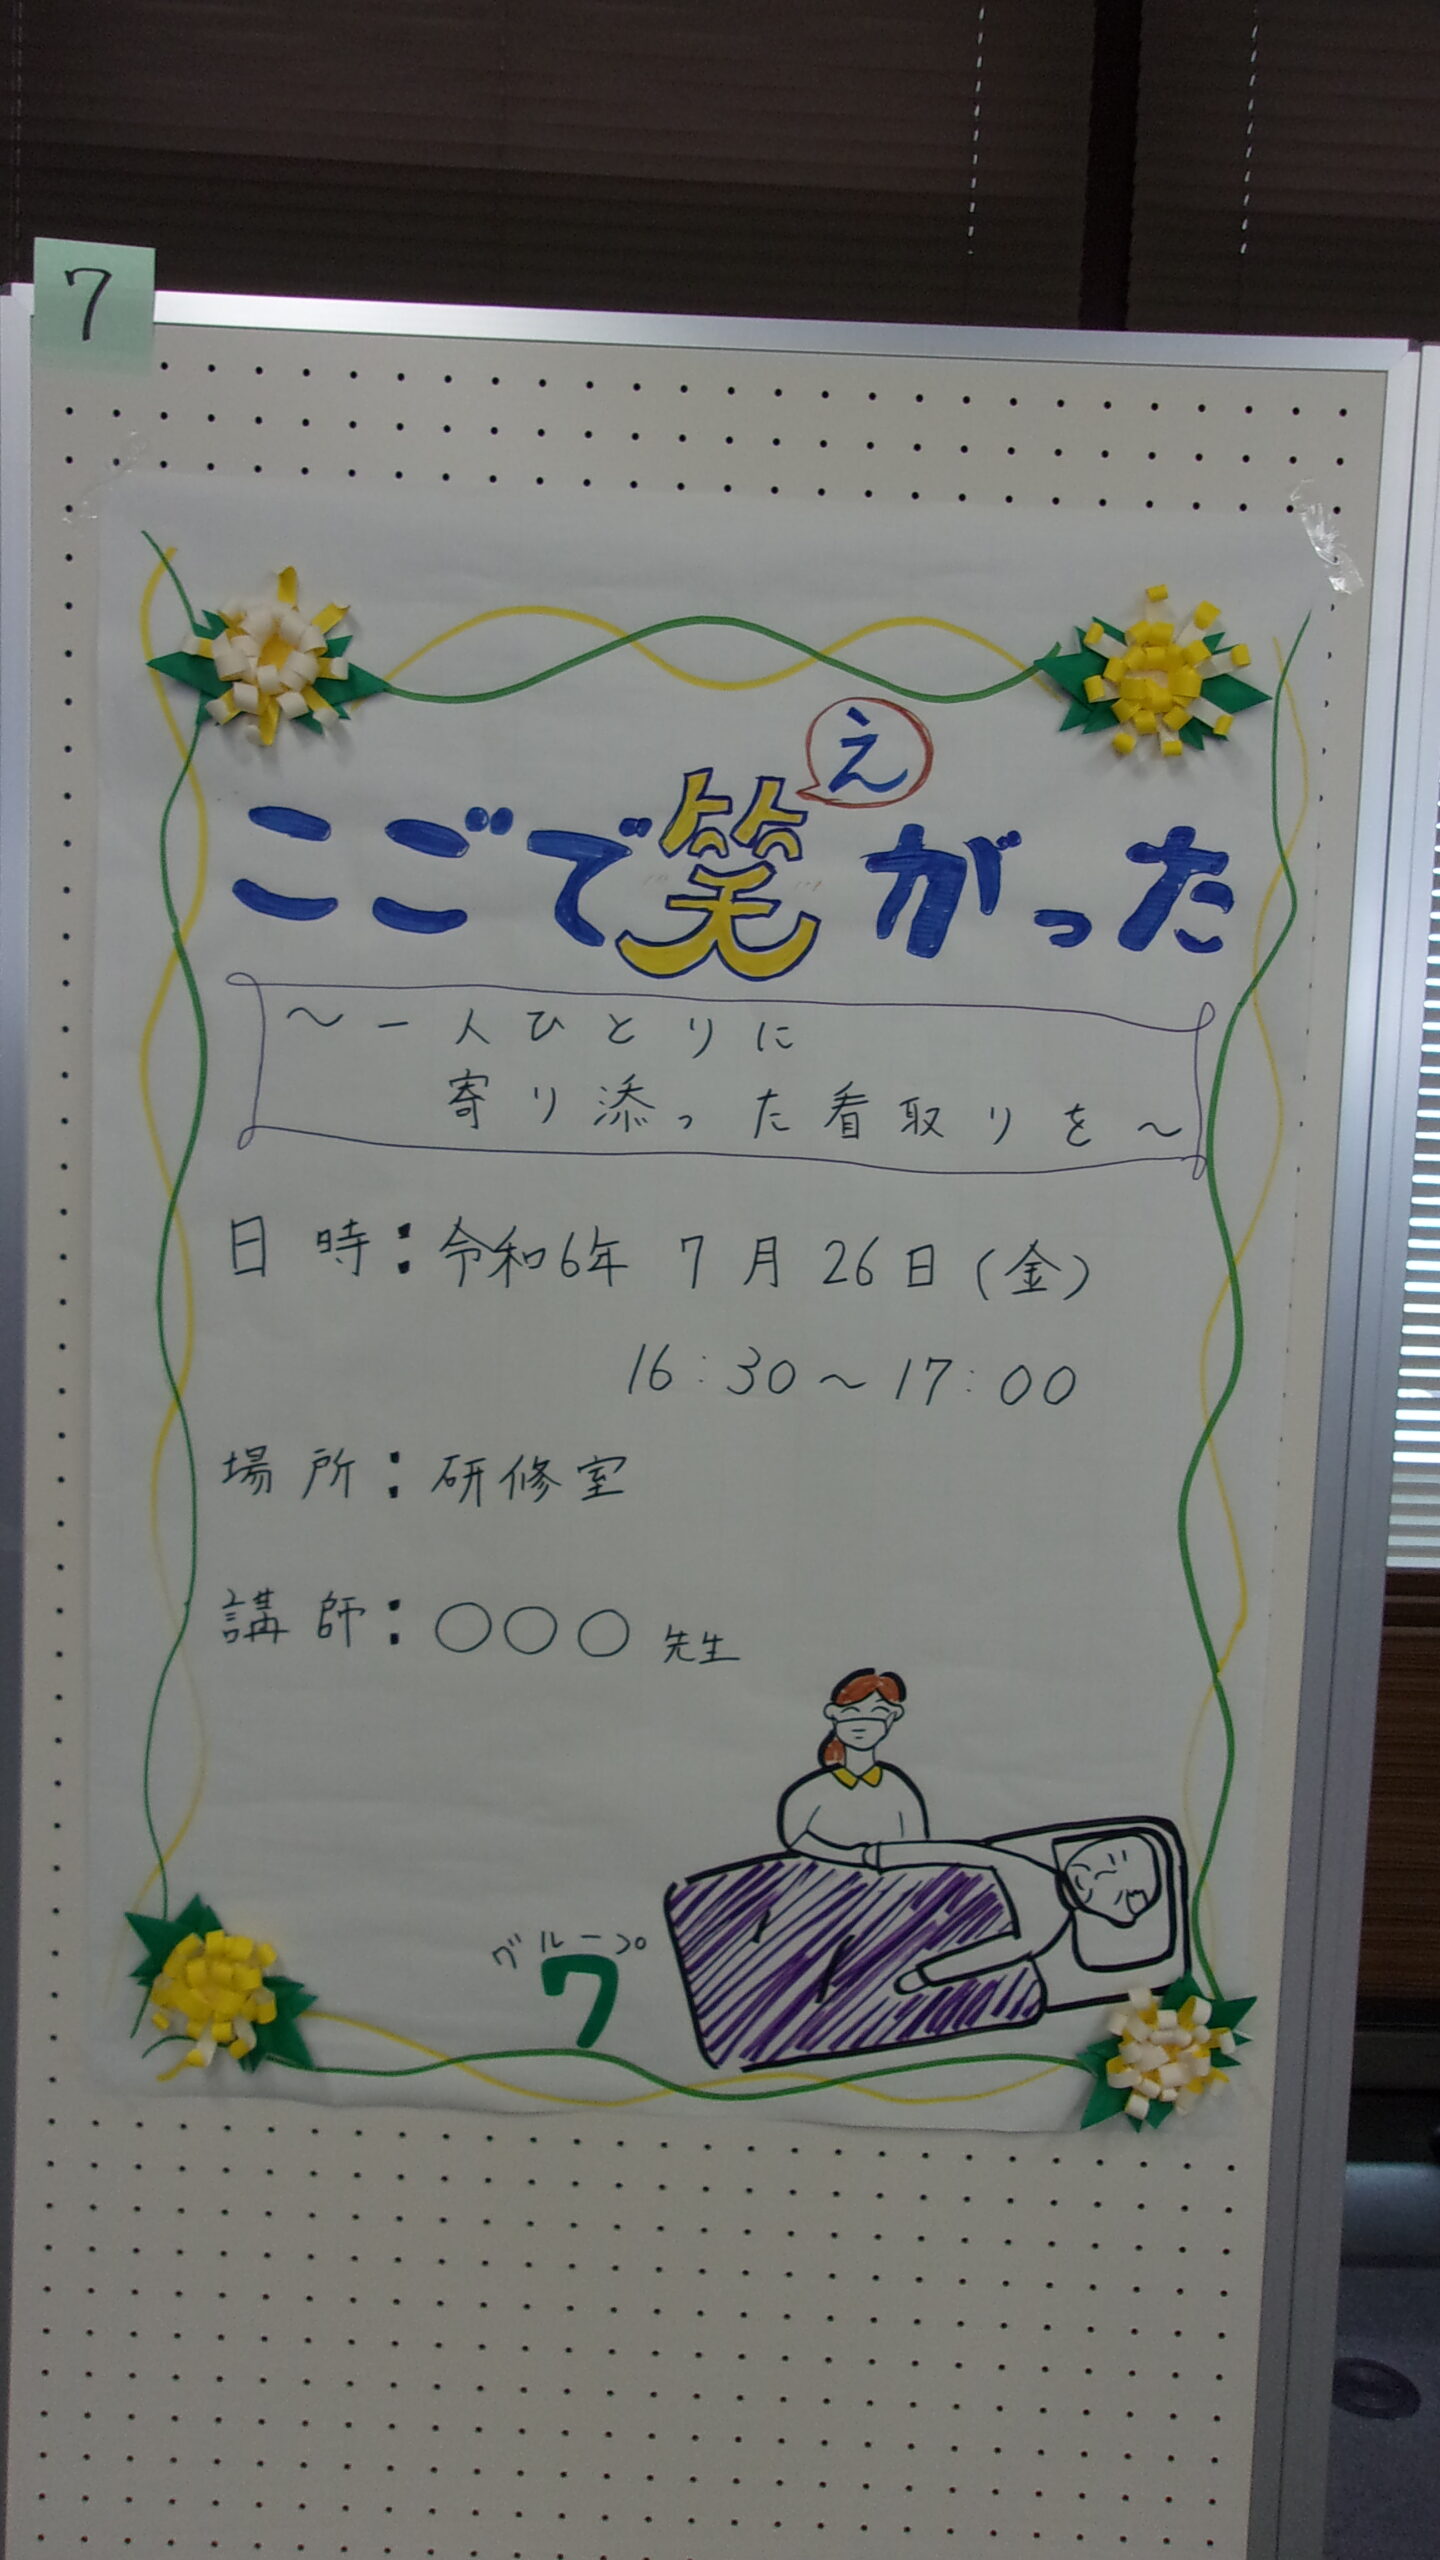 7
え
こごで笑がった
～一人ひとりに
寄り添った看取りを～
日時：令和6年 7月26日(金)
16:30～17:00
場所：研修室
講師：○○○ 先生
グループ
7